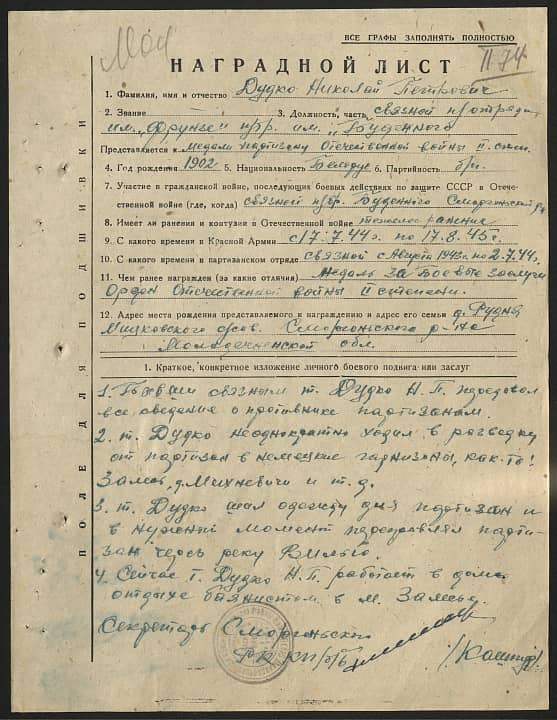 Мол
ВСЕ ГРАФЫ ЗАПОЛНЯТЬ ПОЛНОСТЬЮ
II 74
НАГРАДНОЙ ЛИСТ
1. Фамилия, имя и отчество Дудко Николай Петрович
2. Звание 3. Должность, часть связной п/отряда
им. "Фрунзе" п/бр. им. "Буденного
Представляется к медали партизану Отечественной войны II степ.
4. Год рождения 1902 5. Национальность Белорус 6. Партийность б/п.
7. Участие в гражданской войне, последующих боевых действиях по защите СССР в Отече-
ственной войне (где, когда) связной п/бр. Буденного Сморгонский р-н
8. Имеет ли ранения и контузии в Отечественной войне тяжелое ранение
9. С какого времени в Красной Армии с 17.7.44г. по 17.8.45г.
10. С какого времени в партизанском отряде связной с Августа 1943г по 2.7.44г.
11. Чем ранее награжден (за какие отличия) Медаль за боевые заслуги
Орден Отечественной войны II степени.
12. Адрес места рождения представляемого к награждению и адрес его семьи д. Рудня
Мицковского с/сов. Сморгонского р-на
Молодечненской обл.
1. Краткое, конкретное изложение личного боевого подвига или заслуг
1. Бывши связным т. Дудко Н. П. передовал
все сведение о противнике партизанам.
2. т. Дудко неоднократно ходил в розведку
от партизан в немецкие гарнизоны, как-то!
Залесь, д. Михневичи и т. д.
3. т. Дудко шил одежду для партизан и
в нужный момент переправлял парти-
зан через реку Вилью.
4. Сейчас т. Дудко Н. П. работает в доме
отдыхе баянистом в м. Залесье.
Секретарь Сморгонского
РК КП/б/Б
ПОЛЕ ДЛЯ ПОДШИВКИ